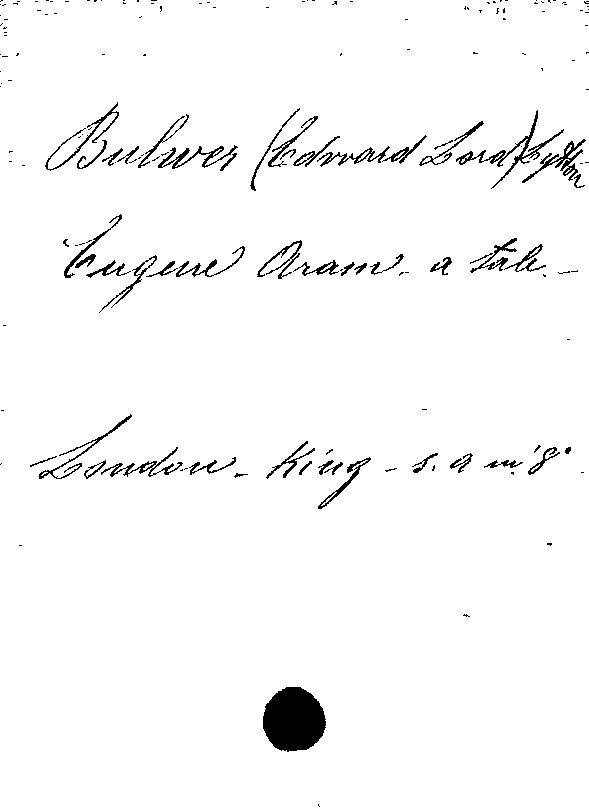 Bulwer (Edward Lord) Lytton
Eugene Aram. a tale. _
London - King - s. a in 8°